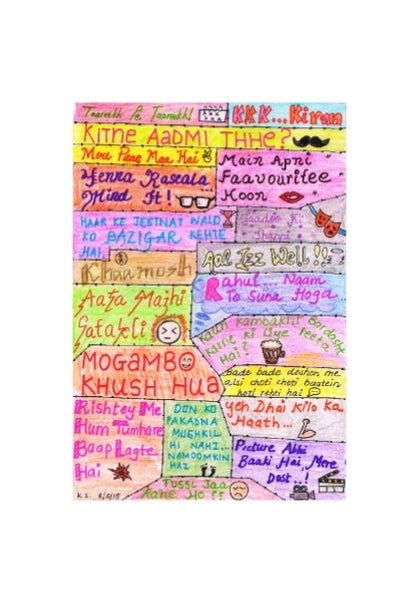 Taareekh Pe Taareekh!
KKK...Kiran
KITNE AADMI THHE?
Mere Paas Maa Hai
Main Apni
Faavouritee
Hoon
Yenna Rascala..
Mind It!
HAAR KE JEETNAY WALO
KO BAZIGAR KEHTE
HAI
Khaamosh
Aal Izz Well!!
Rahul... Naam
To Suna Hoga
Aata Majhi
Satakli
Kaun Kambakht Bardasht
Karne Ki Peeta
Hai?
MOGAMBO
KHUSH HUA
Bade bade deshon me
aisi choti choti baatein
hoti rehti hai
Rishtey Me
Hum Tumhare
Baap Lagte
Hai
DON KO
PAKADNA
MUSHKIL
HI NAHI..
NAMOOMKIN
HAI
Yeh Dhai Kilo Ka
Haath...
Picture Abhi
Baaki Hai, Mere
Dost..!
Tussi Jaa
Rahe Ho!!
K.S. 8/2/15